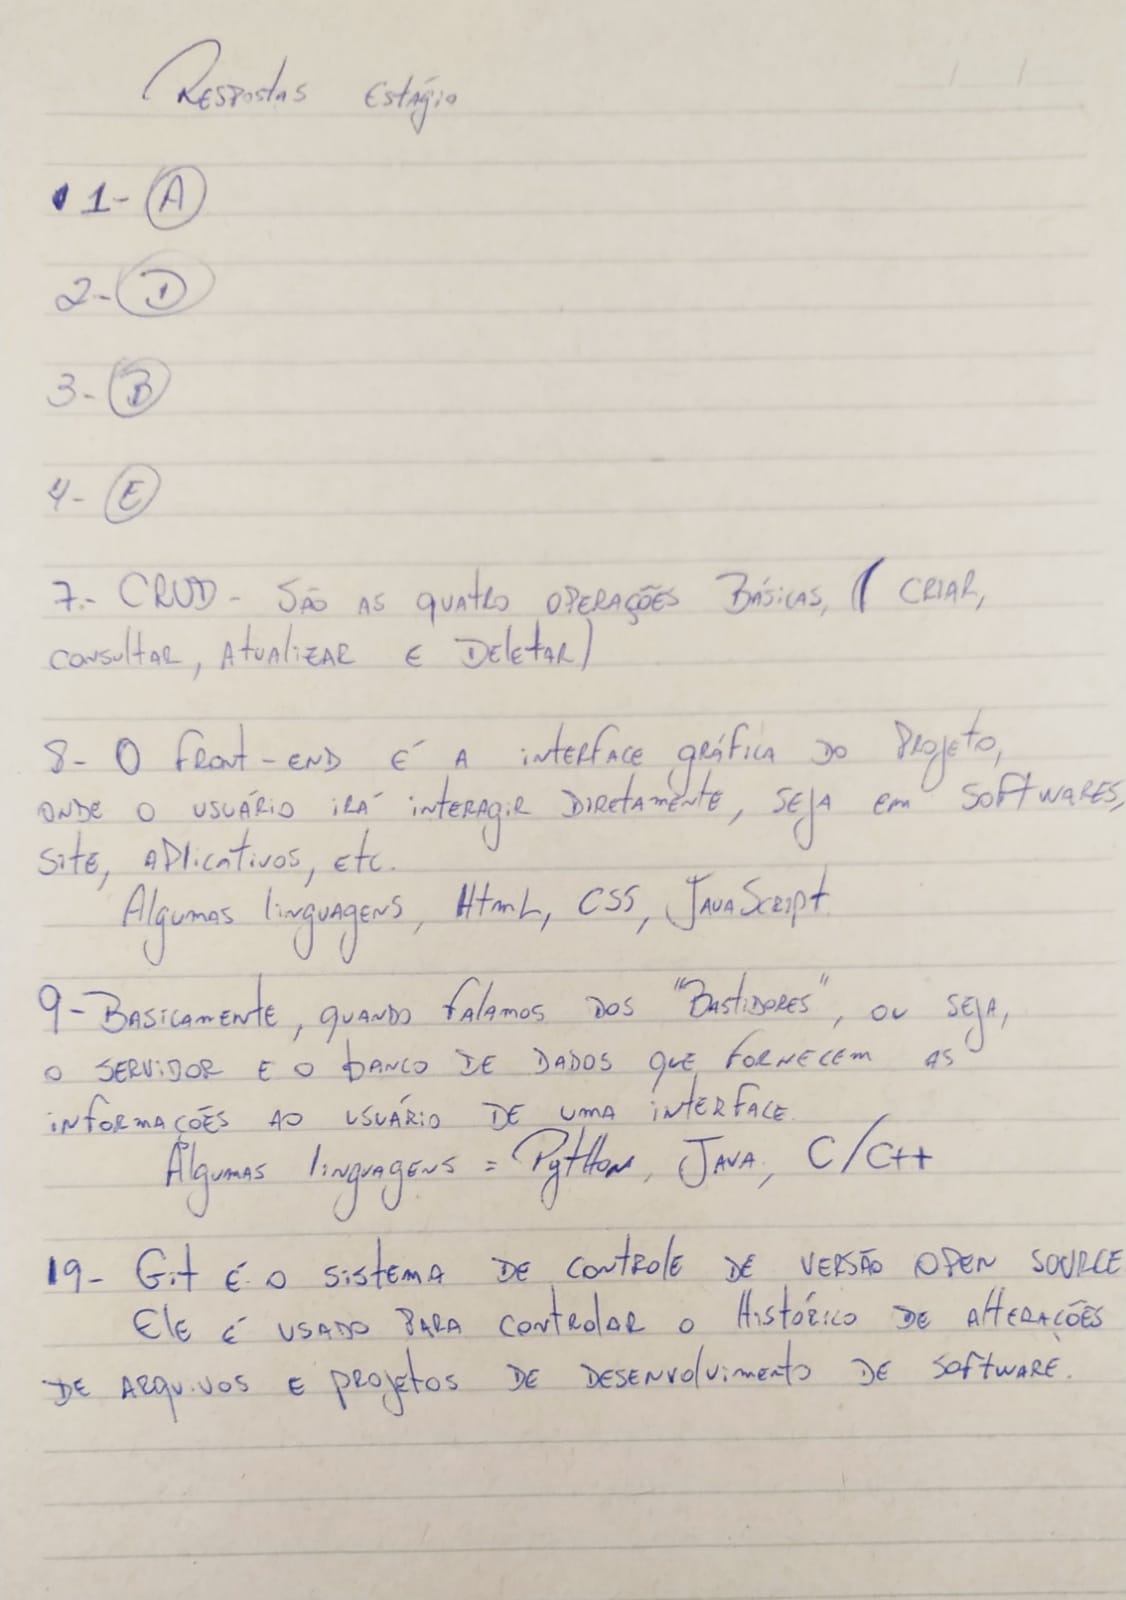 Respostas Estágio
1- A
2- D
3- B
4- E
7- CRUD - São as quatro operações Básicas, ( criar,
consultar, atualizar e deletar)
8- O front-end é a interface gráfica do Projeto,
onde o usuário irá interagir diretamente, seja em softwares,
site, aplicativos, etc.
Algumas linguagens, HtmL, CSS, JavaScript.
9- Basicamente, quando falamos dos "Bastidores", ou seja,
o servidor e o banco de dados que fornecem as
informações ao usuário de uma interface.
Algumas linguagens = Python, Java, C/C++
19- Git é o sistema de controle de versão open source
Ele é usado para controlar o Histórico de alterações
de arquivos e projetos de desenvolvimento de software.